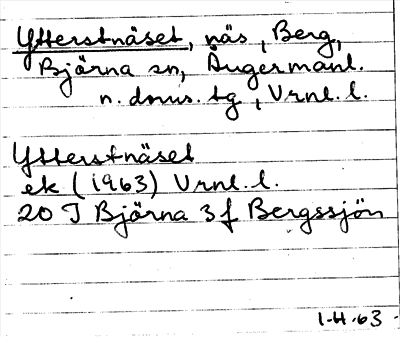 Ytterstnäset, näs, Berg,
Björna sn, Ångermanl.
n. doms. tg, Vrnl. l.
Ytterstnäset
ek (1963) Vrnl. l.
20 J Björna 3 f Bergssjön
1-H-63